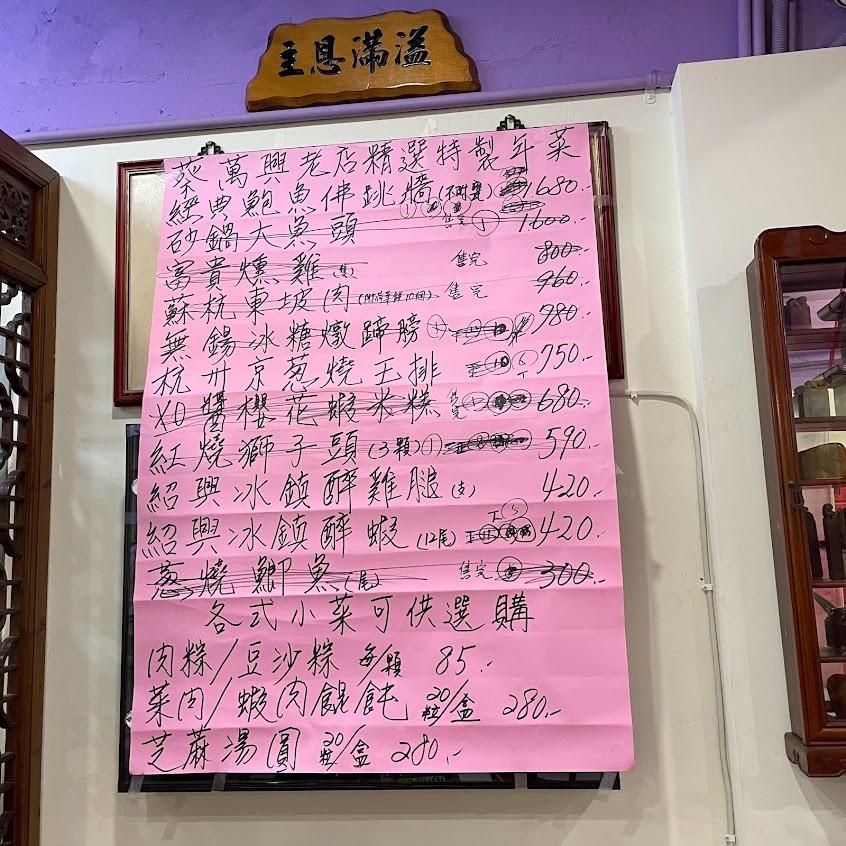 主恩滿溢
蔡萬興老店精選特製年菜
經典鮑魚佛跳牆(不附甕) 1680.-
砂鍋大魚頭 售完 1600.-
富貴燻雞(隻) 售完 800.-
蘇杭東坡肉(附荷葉餅10個) 售完 960.-
無錫冰糖燉蹄膀 980.-
杭州京蔥燒子排 750.-
XO醬櫻花蝦米糕 售完 680.-
紅燒獅子頭(3顆) 590.-
紹興冰鎮醉雞腿(支) 420.-
紹興冰鎮醉蝦(12尾) 420.-
蔥燒鯽魚(尾) 售完 300.-
各式小菜可供選購
肉粽/豆沙粽 每/顆 85.-
菜肉/蝦肉餛飩 20粒/盒 280.-
芝蔴湯圓 20粒/盒 280.-